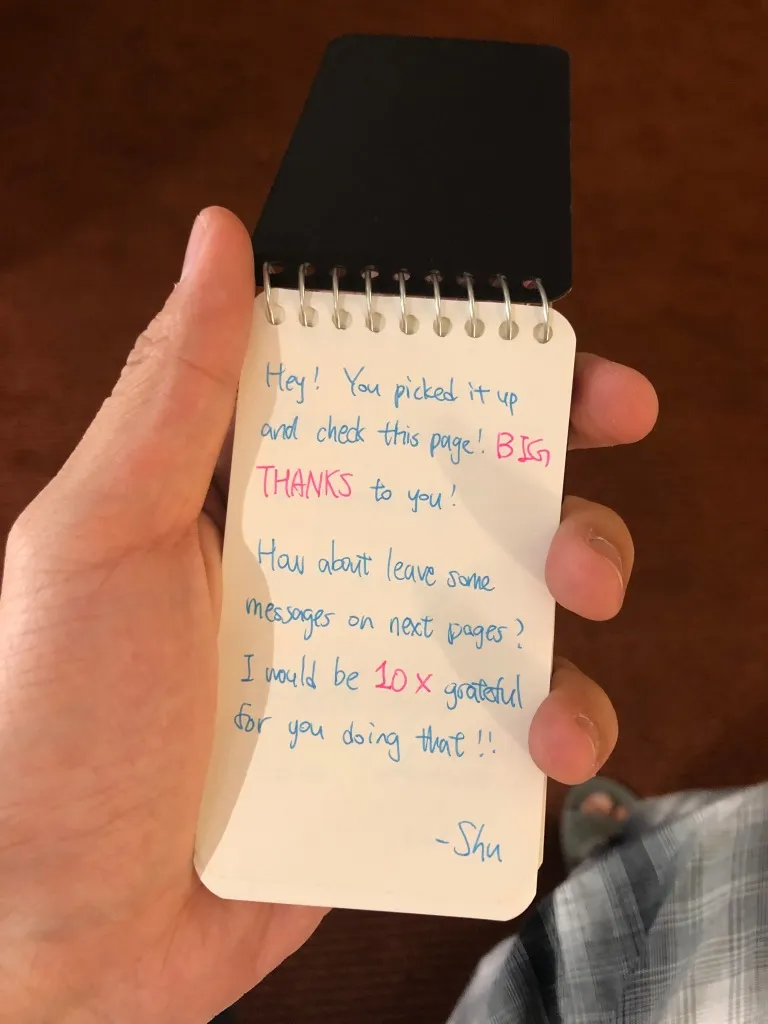 Hey! You picked it up
and check this page! BIG
THANKS to you!
How about leave some
messages on next pages?
I would be 10X grateful
for you doing that!!
-Shu